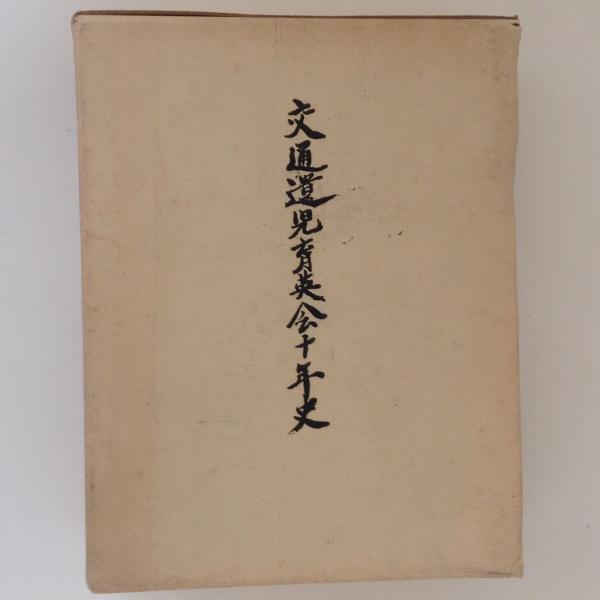 交通遺児育英会十年史